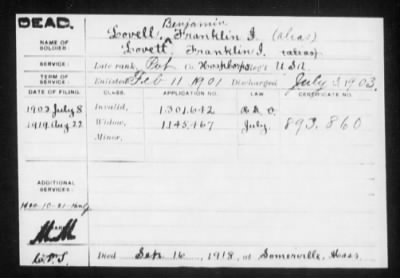 DEAD.
Benjamin
NAME OF SOLDIER:
Lovell, ^ Franklin I. (alias)
Lovett, Franklin I. (alias)
SERVICE:
Late rank, Pvt Co. Hosp Corps, U S A
TERM OF SERVICE:
Enlisted Feb 11 1901 Discharged July 3 1903.
DATE OF FILING. CLASS. APPLICATION NO. LAW CERTIFICATE NO.
1903 July 8 Invalid, 1.301.642
1919 Aug 22 Widow, 1145.467 July. 893.860
Minor,
ADDITIONAL SERVICES:
Died Sep. 16, 1918, at Somerville, Mass.